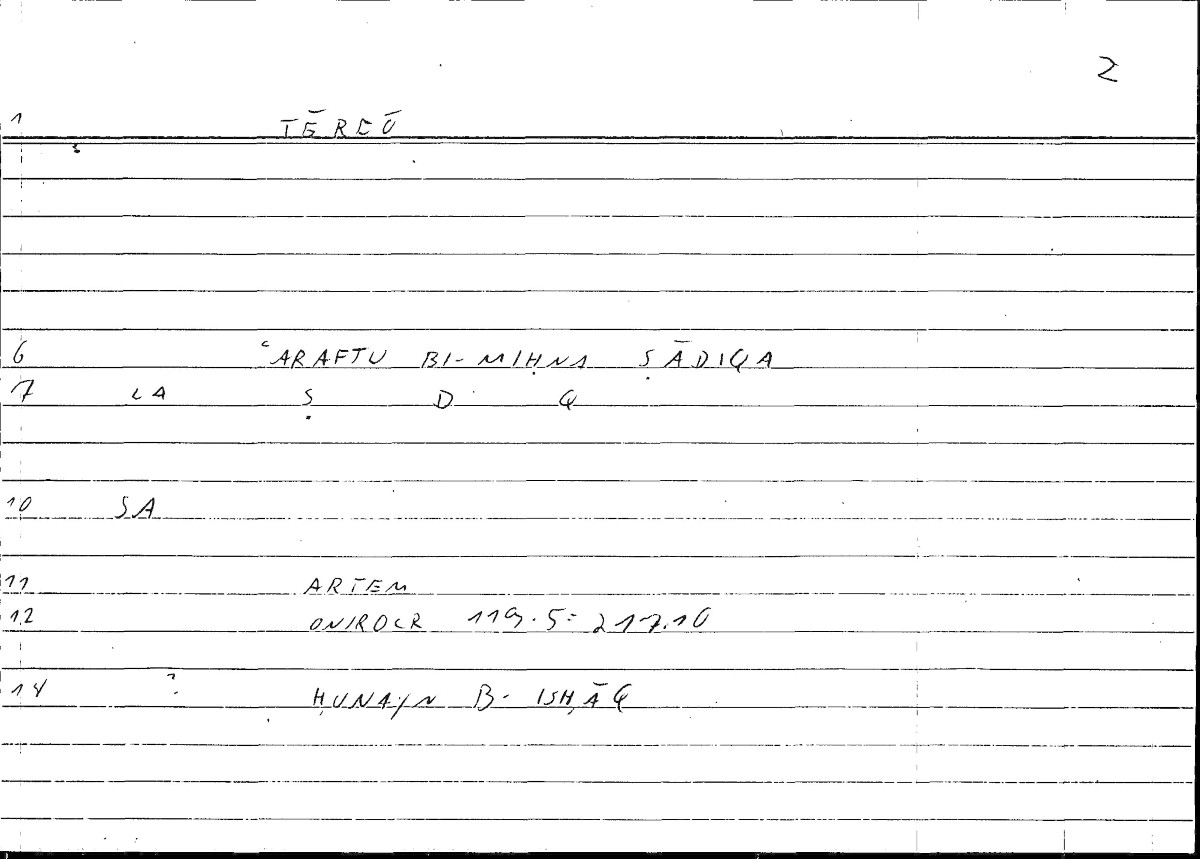 2
1 TĒREŌ
6 ʿARAFTU BI-MIHNA ṢĀDIQA
7 LA Ṣ D Q
10 SA
11 ARTEM
12 ONIROCR 119.5 = 217.10
14 ? ḤUNAYN B- ISḤĀQ